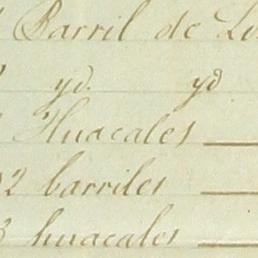 Barril de
yd. yd
Huacales
2 barriles
3 huacales